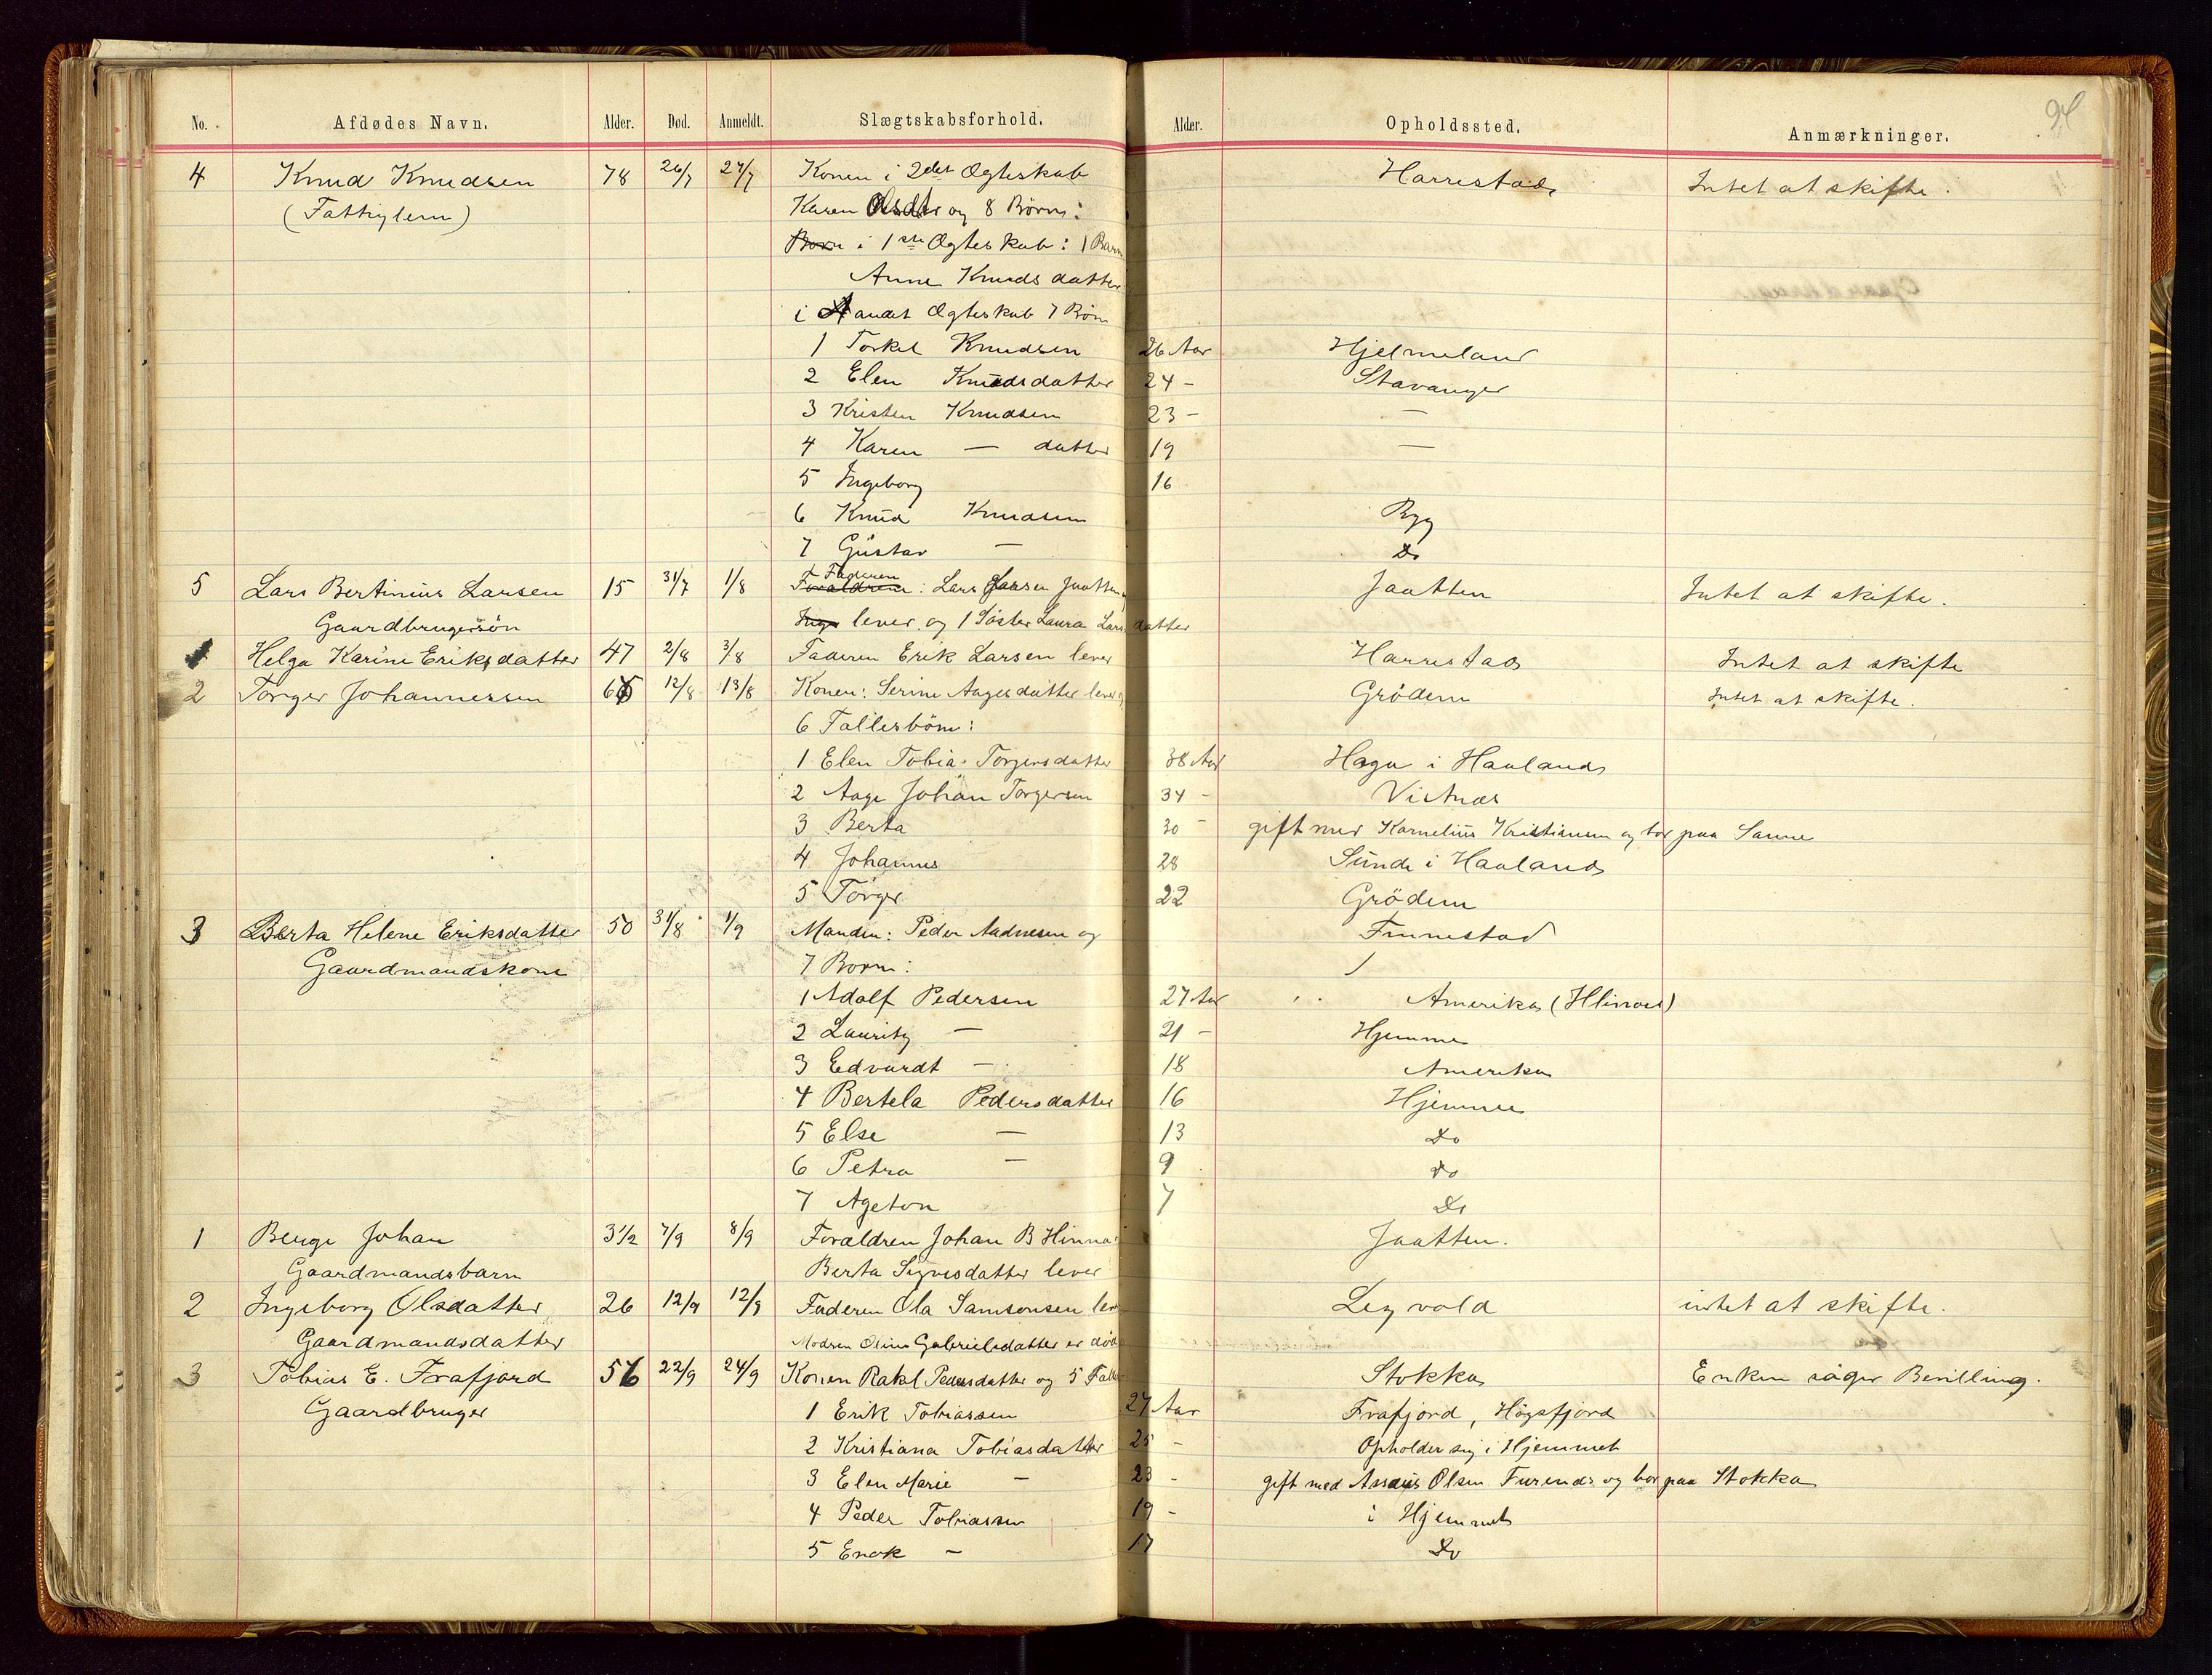 94
No. Afdødes Navn. Alder. Død. Anmeldt. Slægtskabsforhold. Alder. Opholdssted. Anmærkninger.
4 Knud Knudsen 78 26/7 27/7 Konen i 2det Ægteskab Harrestad Intet at skifte.
(Fattiglem) Karen Olsdtr og 8 Börn:
Børn i 1ste Ægteskab: 1 Barn
Anne Knudsdatter
i Andet Ægteskab 7 Börn
1 Torkel Knudsen 26 Aar Hjelmeland
2 Elen Knudsdatter 24 – Stavanger
3 Kristen Knudsen 23 – –
4 Karen – datter 19 –
5 Ingeborg 16
6 Knud Knudsen Ryg
7 Gustav – Do
5 Lars Bertinius Larsen 15 31/7 1/8 Forældrene Faderen: Lars Larsen Jaatten Jaatten Intet at skifte.
Gaardbrugersön lever og 1 Söster Laura Larsdatter
1 Helga Karine Eriksdatter 47 2/8 3/8 Faderen Erik Larsen lever Harrestad Intet at skifte
2 Torger Johannessen 65 12/8 13/8 Konen: Serine Aagesdatter lever Grödem Intet at skifte.
6 Fællesbörn:
1 Elen Tobia Torgersdatter 38 Aar Haga i Haaland
2 Aage Johan Torgersen 34 – Vistnæs
3 Berta 30 – gift med Kornelius Kristiansen og bor paa Sanne
4 Johannes 28 Sunde i Haaland
5 Torger 22 Grödem
3 Berta Helene Eriksdatter 50 31/8 1/9 Manden: Peder Aadnesen og Finnestad
Gaardmandskone 7 Børn:
1 Adolf Pedersen 27 Aar Amerika (Illinois)
2 Lauritz – 21 – Hjemme
3 Edvardt – 18 Amerika
4 Bertela Pedersdatter 16 Hjemme
5 Else – 13 Do
6 Petra – 9 do
7 Ageton 7 Do
1 Benge Johan 3 1/2 7/9 8/9 Forældren Johan B Hinna Jaatten.
Gaardmandsbarn Berta Sigvesdatter lever
2 Ingeborg Olsdatter 26 12/9 12/9 Faderen Ola Samsonsen lev Legvold intet at skifte.
Gaardmandsdatter Modren Oline Gabrielsdatter er död
3 Tobias E. Frafjord 56 22/9 24/9 Konen Rakel Pedersdatter og 5 Fælles Stokka Enken søger Bevilling.
Gaardbruger 1 Erik Tobiassen 27 Aar Frafjord, Högsfjord
2 Kristiana Tobiasdatter 25 – Opholder sig i Hjemmet
3 Elen Marie – 23 – gift med Olsen og bor paa Stokka
4 Peder Tobiassen 19 – i Hjemmet
5 Enok – 17 Do